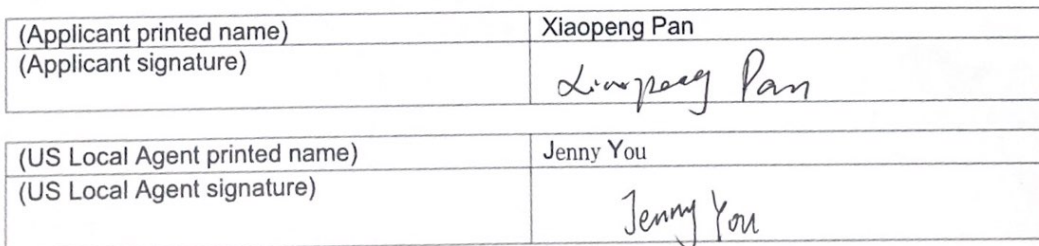 (Applicant printed name) Xiaopeng Pan
(Applicant signature) Xiaopeng Pan
(US Local Agent printed name) Jenny You
(US Local Agent signature) Jenny You